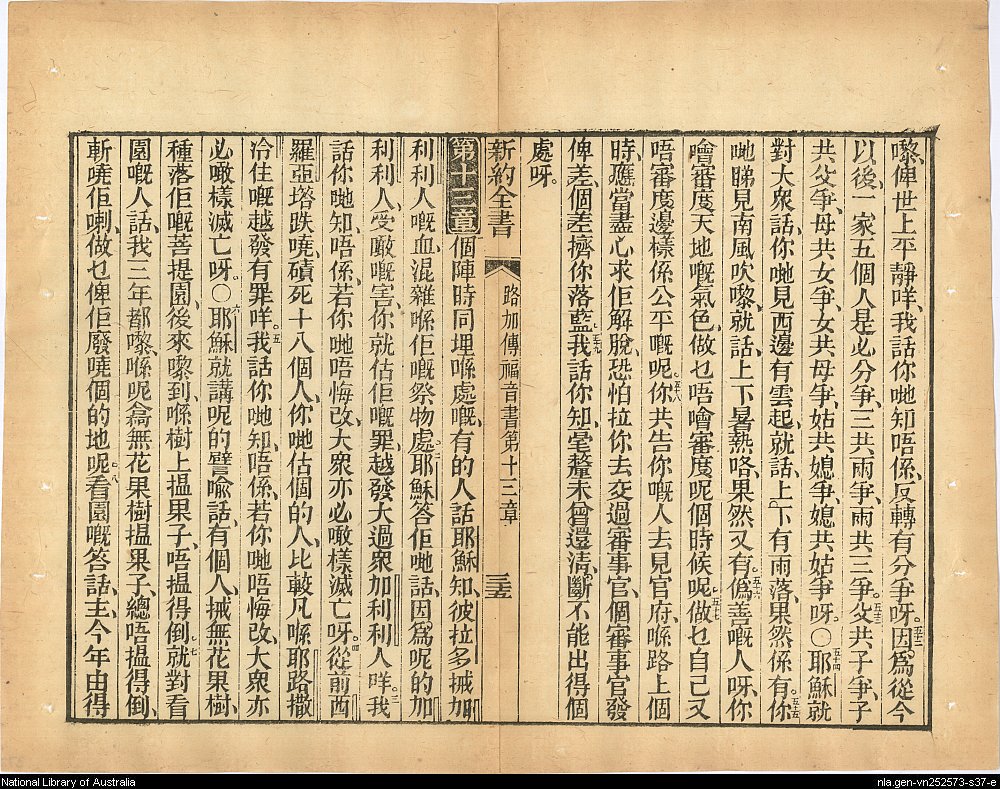 嚟、俾世上平靜咩、我話你哋知唔係、反轉有分爭呀。五十二因爲從今
以後、一家五個人是必分爭、三共兩爭、兩共三爭。五十三父共子爭、子
共父爭、母共女爭、女共母爭、姑共媳爭、媳共姑爭呀。〇五十四耶穌就
對大衆話、你哋見西邊有雲起、就話上下有雨落、果然係有。五十五你
哋睇見南風吹嚟、就話上下暑熱咯、果然又有。五十六僞善嘅人呀、你
噲審度天地嘅氣色、做乜唔噲審度呢個時候呢。五十七做乜自己又
唔審度邊樣係公平嘅呢。五十八你共告你嘅人去見官府、喺路上個
時、應當盡心求佢解脫、恐怕拉你去交過審事官、個審事官發
俾差、個差擠你落監。五十九我話你知、毫釐未曾還清、斷不能出得個
處呀。
新約全書 路加傳福音書第十三章 三十五
第十三章 個陣時同埋喺處嘅、有的人話耶穌知、彼拉多摵加
利利人嘅血、混雜喺佢嘅祭物處。二耶穌答佢哋話、因爲呢的加
利利人、受噉嘅害、你就估佢嘅罪、越發大過衆加利利人咩。三我
話你哋知、唔係、若你哋唔悔改、大衆亦必噉樣滅亡呀。四從前西
羅亞塔跌嘵、磧死十八個人、你哋估個的人、比較凡喺耶路撒
冷住嘅越發有罪咩。五我話你哋知、唔係、若你哋唔悔改、大衆亦
必噉樣滅亡呀。〇六耶穌就講呢的譬喩話、有個人、摵無花果樹、
種落佢嘅菩提園、後來嚟到、喺樹上搵果子、唔搵得倒。七就對看
園嘅人話、我三年都嚟、喺呢龠無花果樹搵果子、總唔搵得倒、
斬嘵佢喇、做乜俾佢廢嘵個的地呢。八看園嘅答話、主、今年由得
National Library of Australia
nla.gen-vn252573-s37-e